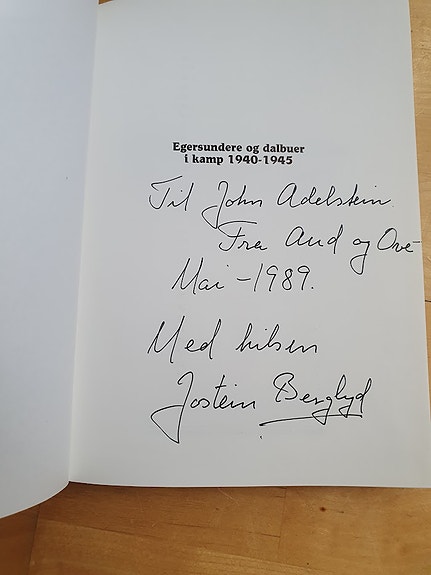 Egersundere og dalbuer
i kamp 1940-1945
Til John Adelstein.
Fra Aud og Ove
Mai - 1989.
Med hilsen
Jostein Berglyd